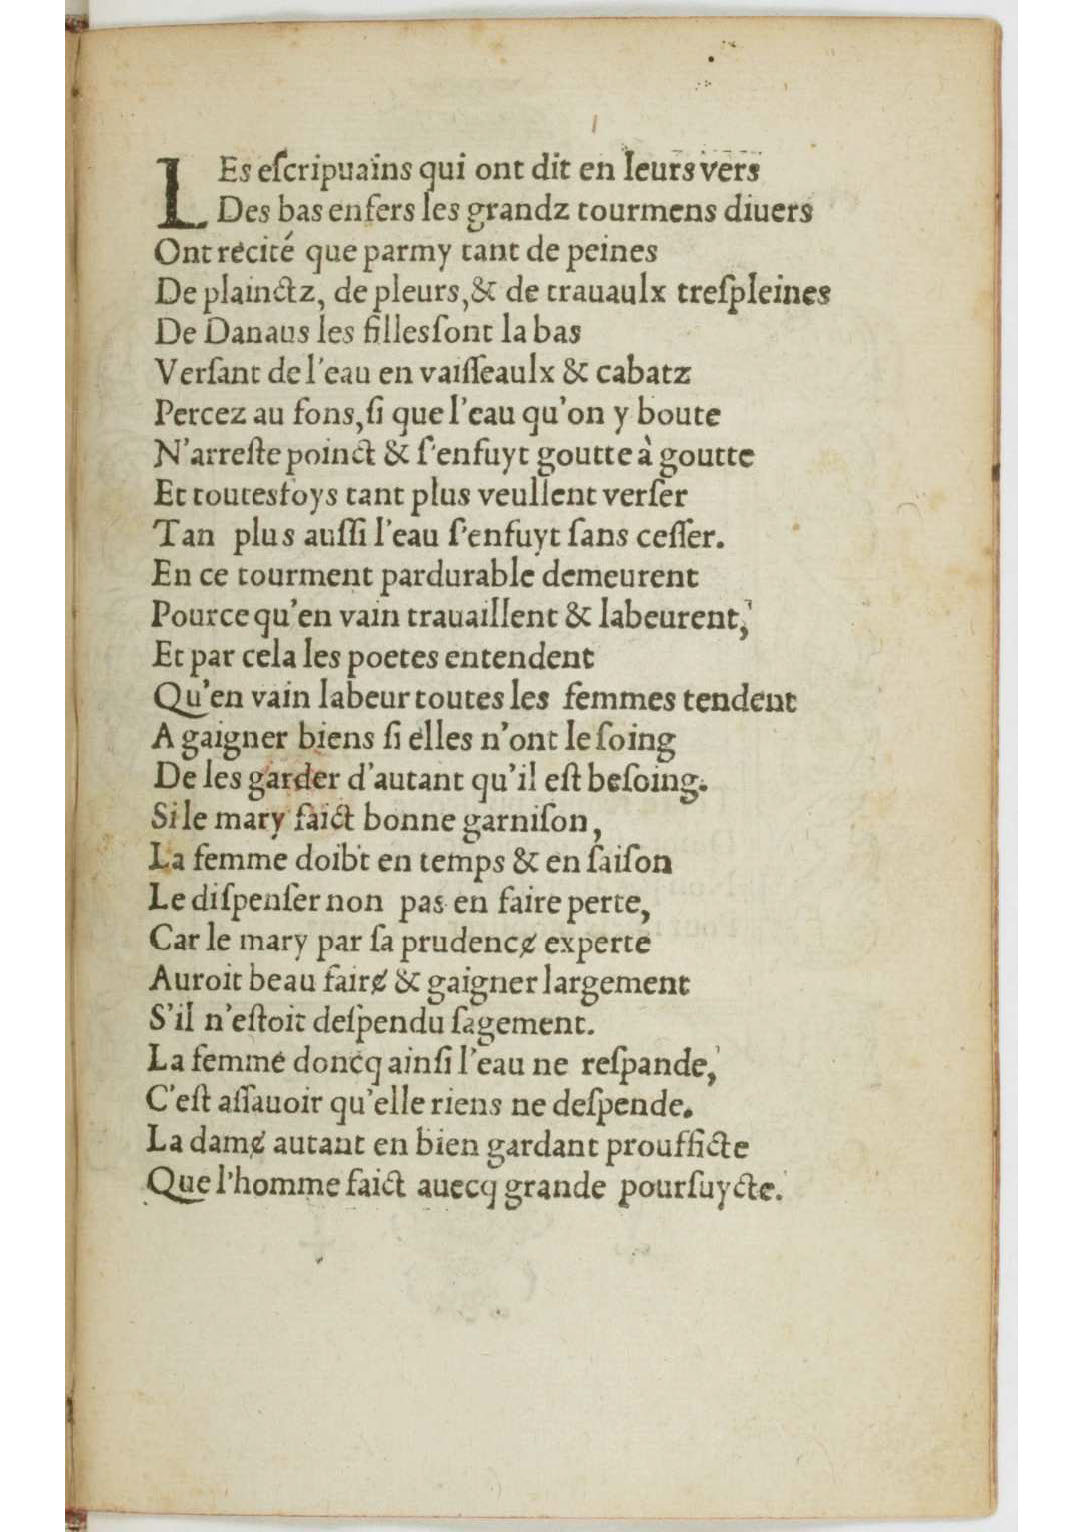 LEs eſcripuains qui ont dit en leurs vers
Des bas enfers les grandz tourmens diuers
Ont recité que parmy tant de peines
De plainctz, de pleurs, & de trauaulx treſpleines
De Danaus les filles ſont la bas
Verſant de l'eau en vaiſſeaulx & cabatz
Percez au fons, ſi que l'eau qu'on y boute
N'arreſte poinct & ſ'enfuyt goutte à goutte
Et toutesfoys tant plus veullent verſer
Tan plus auſſi l'eau ſ'enfuyt ſans ceſſer.
En ce tourment pardurable demeurent
Pource qu'en vain trauaillent & labeurent,
Et par cela les poetes entendent
Qu'en vain labeur toutes les femmes tendent
A gaigner biens ſi elles n'ont le ſoing
De les garder d'autant qu'il eſt beſoing.
Si le mary faict bonne garniſon,
La femme doibt en temps & en ſaiſon
Le diſpenſer non pas en faire perte,
Car le mary par ſa prudencɇ experte
Auroit beau fairɇ & gaigner largement
S'il n'eſtoit deſpendu ſagement.
La femme doncq ainſi l'eau ne reſpande,
C'eſt aſſauoir qu'elle riens ne deſpende.
La damɇ autant en bien gardant proufficte
Que l'homme faict auecq grande pourſuycte.